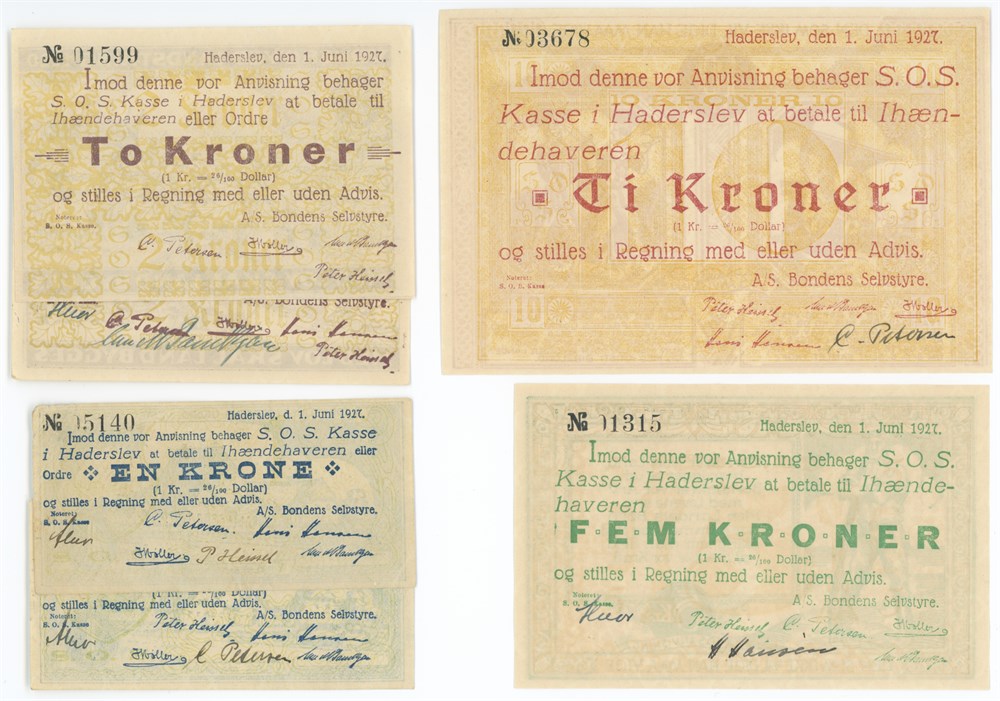 № 01599
Haderslev, den 1. Juni 1927.
Imod denne vor Anvisning behager
S. O. S. Kasse i Haderslev at betale til
Ihændehaveren eller Ordre
To Kroner
(1 Kr. = 26/100 Dollar)
og stilles i Regning med eller uden Advis.
Noteret:
S. O. S. Kasse.
A/S. Bondens Selvstyre.
C. Petersen
J Møller
Peter Heinsel
2 Kroner
A/S. Bondens Selvstyre.
C. Petersen
J Møller
Hans Hansen
Peter Heinsel
№ 03678
Haderslev, den 1. Juni 1927.
Imod denne vor Anvisning behager S. O. S.
10 KRONER 10
Kasse i Haderslev at betale til Ihæn-
dehaveren
Ti Kroner
(1 Kr. = 26/100 Dollar)
og stilles i Regning med eller uden Advis.
Noteret:
S. O. S. Kasse.
A/S. Bondens Selvstyre.
10
Peter Heinsel
J Møller
Hans Hansen
C. Petersen
№ 05140
Haderslev, d. 1. Juni 1927.
Imod denne vor Anvisning behager S. O. S. Kasse
i Haderslev at betale til Ihændehaveren eller
Ordre EN KRONE
(1 Kr. = 26/100 Dollar)
og stilles i Regning med eller uden Advis.
Noteret:
S. O. S. Kasse
A/S. Bondens Selvstyre.
C. Petersen.
Hans Hansen
J Møller
P Heinsel
(1 Kr. = 26/100 Dollar)
og stilles i Regning med eller uden Advis.
Noteret:
S. O. S. Kasse
A/S. Bondens Selvstyre.
Peter Heinsel
Hans Hansen
J Møller
C Petersen
№ 01315
Haderslev, den 1. Juni 1927.
Imod denne vor Anvisning behager S. O. S.
Kasse i Haderslev at betale til Ihænde-
haveren
F·E·M K·R·O·N·E·R
(1 Kr. = 26/100 Dollar)
og stilles i Regning med eller uden Advis.
Noteret:
S. O. S. Kasse.
A/S. Bondens Selvstyre.
Peter Heinsel
C. Petersen
J Møller
H Hansen